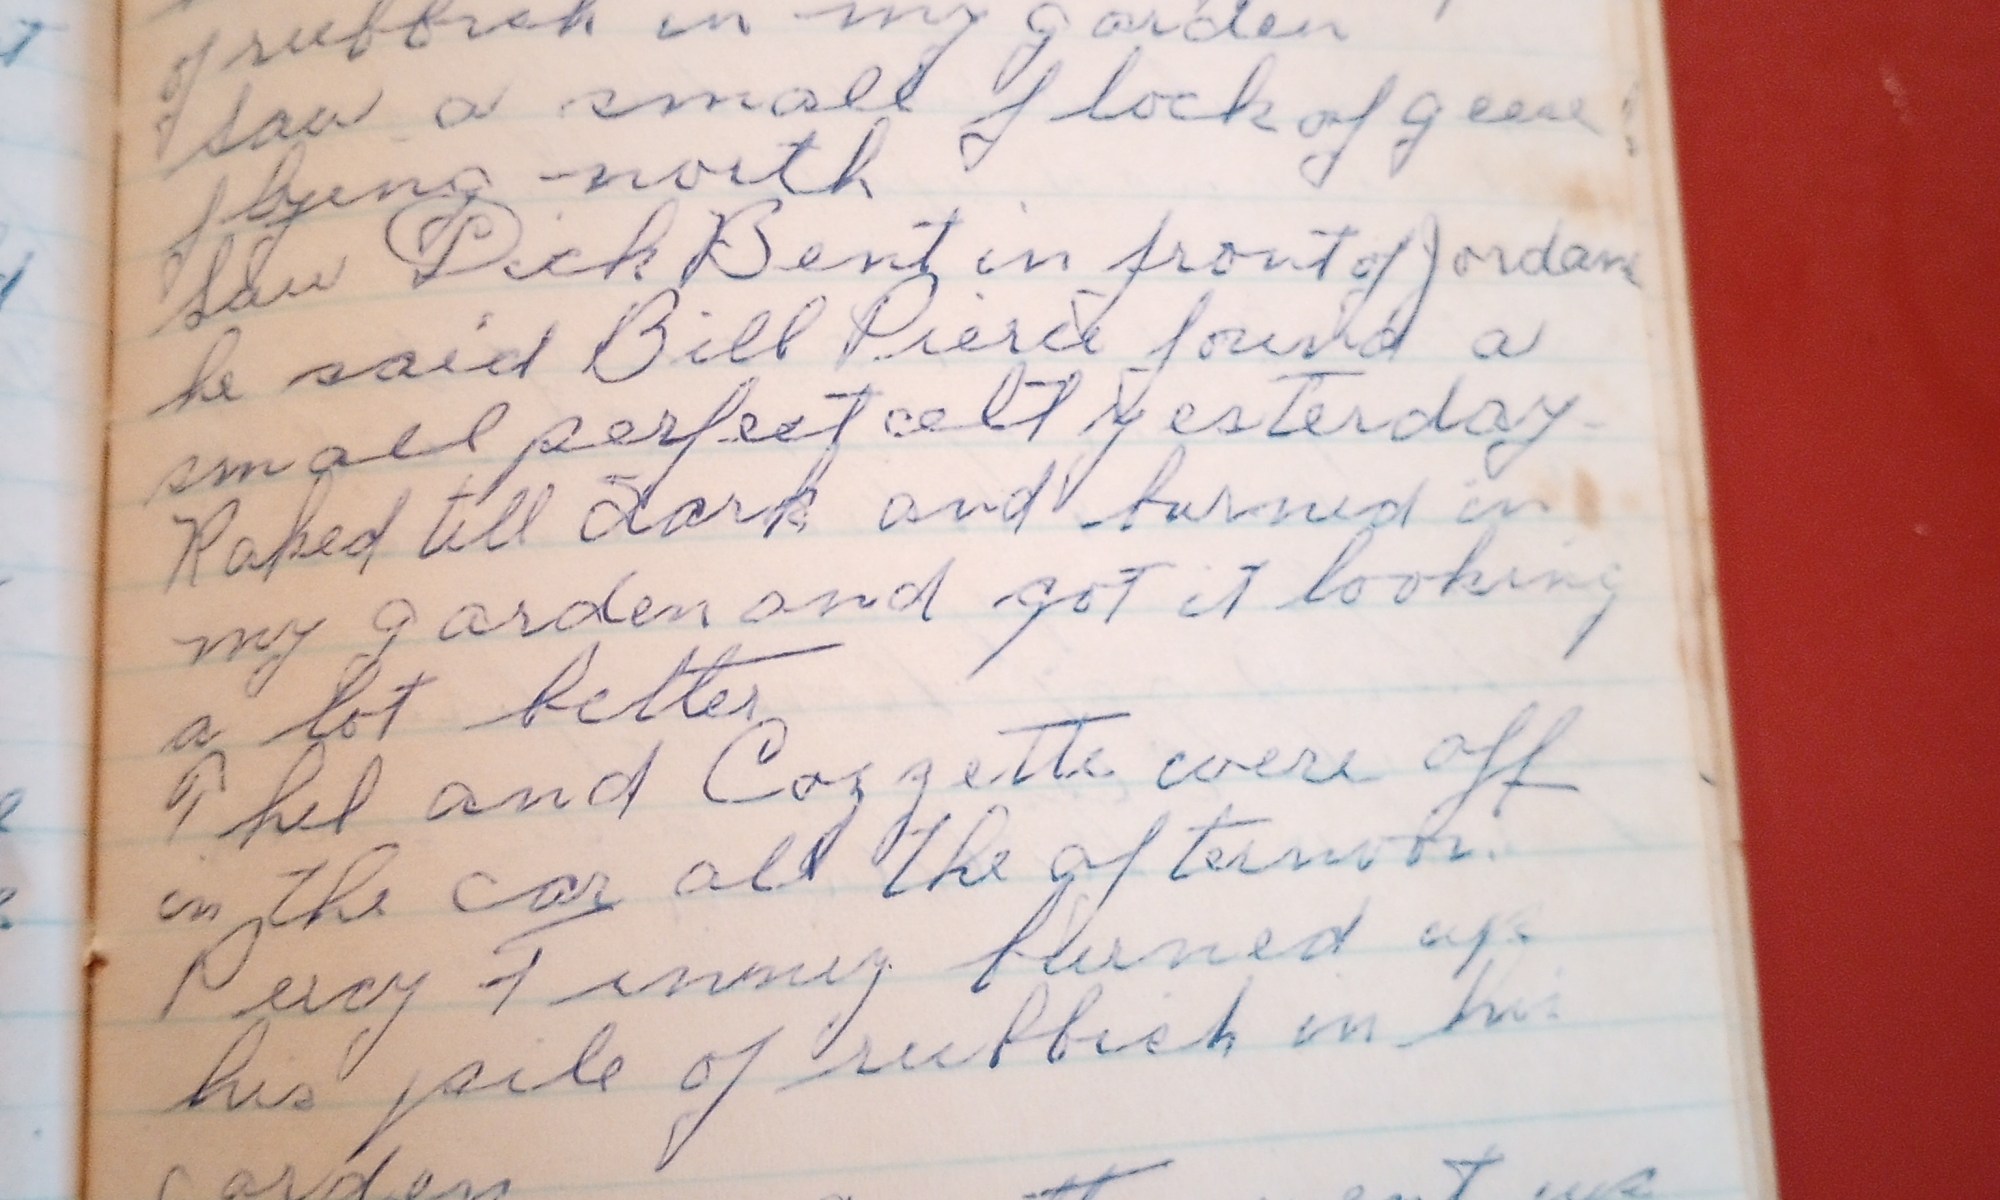 of rubbish in my garden
Saw a small flock of geese
flying north
Saw Dick Bent in front of Jordans
he said Bill Pierce found a
small perfect celt yesterday-
Raked till dark and burned in
my garden and got it looking
a lot better
Phil and Cozzette were off
in the car all the afternoon.
Percy Finney burned up
his pile of rubbish in his
garden